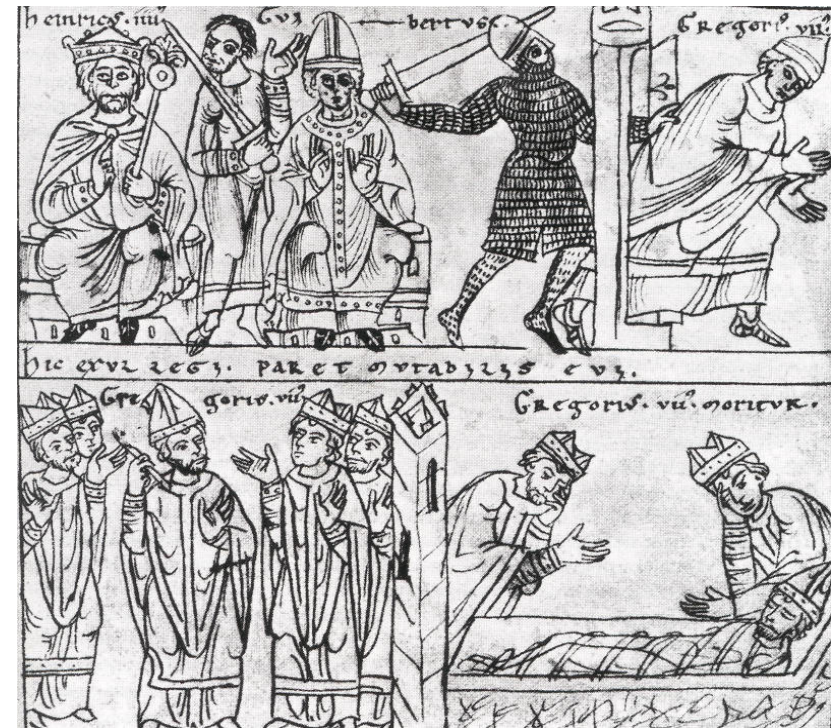 heinricus · iiii
Gvi bertvs
Gregoriᵘˢ · vii
hic exvl regi · paret mvtabilis evi ·
Gre gorivs · vii
Gregorivs · vii · moritvr ·